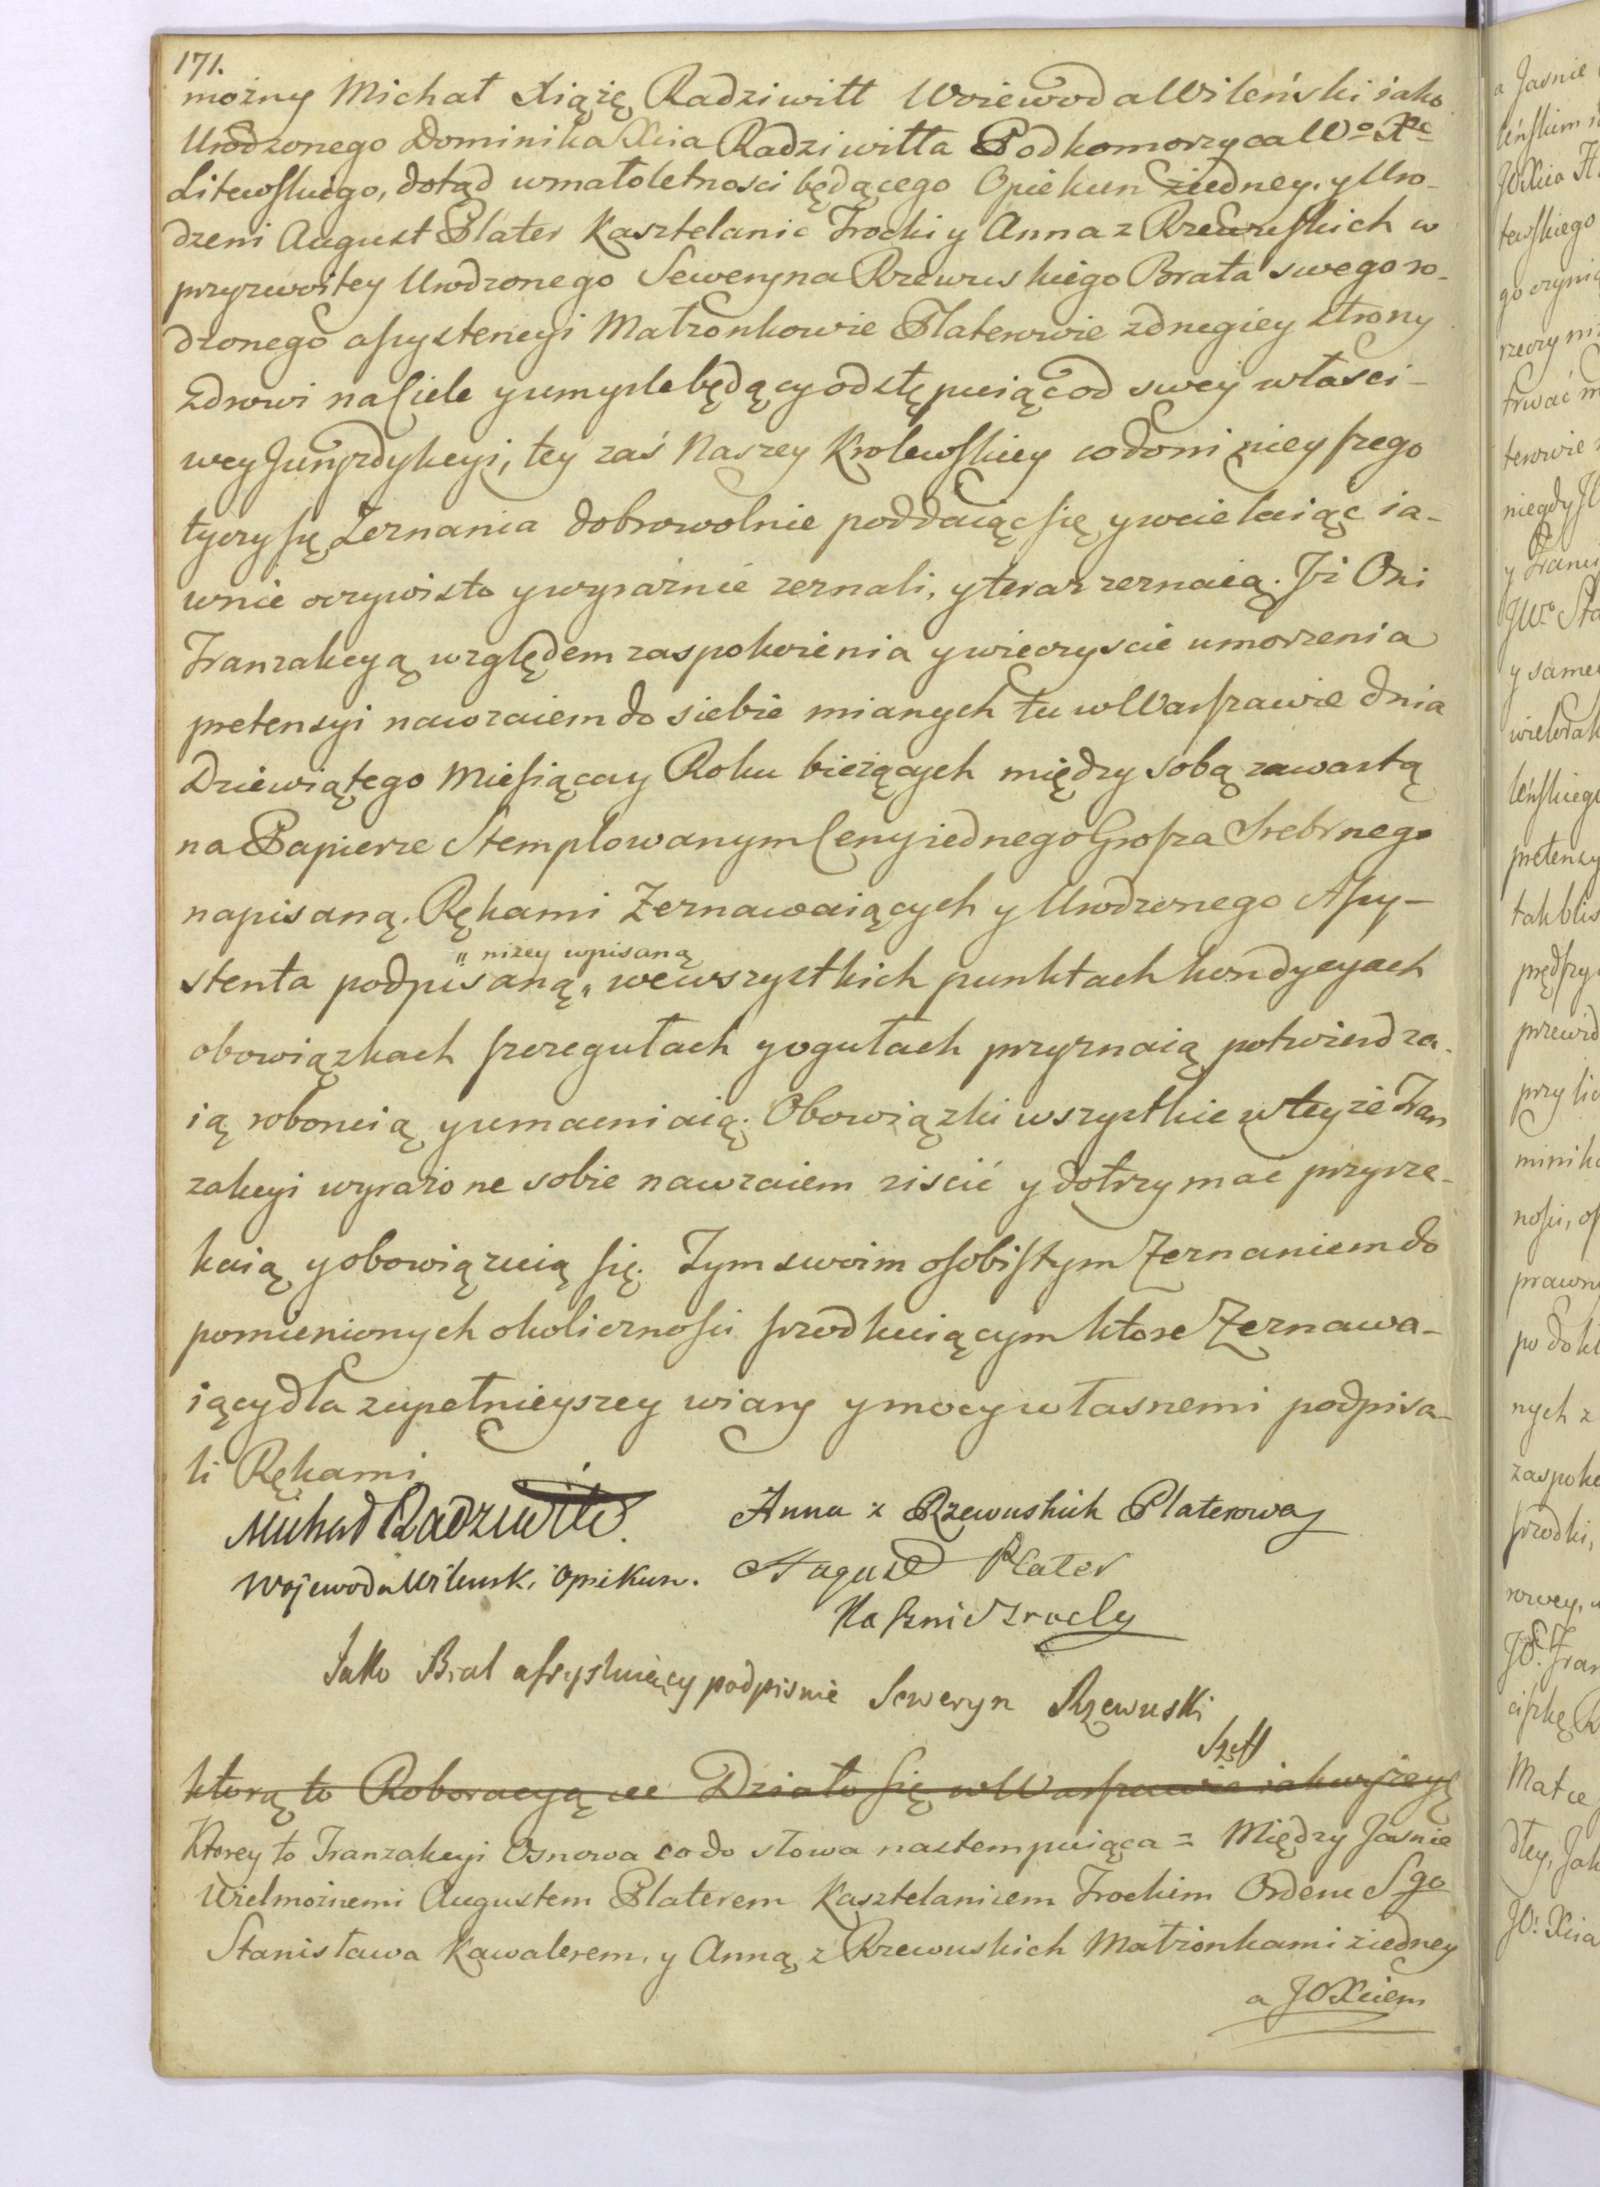 171.
możny Michał Xiążę Radziwiłł Woiewoda Wileński iako
Urodzonego Dominika Xcia Radziwiłła Podkomorzyca Wo Xc
Litewskiego, dotąd w małoletnosci będącego Opiekun ziedney, y Uro-
dzeni August Plater Kasztelanic Trocki y Anna z Rzewuskich w
przyzwoitey Urodzonego Seweryna Rzewuskiego Brata swego ro-
dzonego assystencyi Małżonkowie Platerowie zdrugiey strony
zdrowi na Ciele y umysle będący odstępuiąc od swey własci-
wey Juryzdykcyi, tey zaś Naszey Krolewskiey co do ninieyszego
tyczy się Zeznania dobrowolnie poddaiąc się y wcielaiąc ia-
wnie oczywisto y wyraźnie zeznali, y teraz zeznaią. Jż Oni
Tranzakcyą względem zaspokoienia y wieczyscie umorzenia
pretensyi nawzaiem do siebie mianych tu w Warszawie dnia
Dziewiątego Miesiąca y Roku bieżących między sobą zawartą
na Papierze Stemplowanym Ceny iednego Grosza Srebrnego
napisaną. Rękami Zeznawaiących y Urodzonego Assy-
" niżey wpisaną
stenta podpisaną " we wszystkich punktach kondycyach
obowiązkach szczegułach y ogułach przyznaią potwierdza-
ią roboruią y umacniaią. Obowiązki wszystkie w teyże Tran
zakcyi wyrażone sobie nawzaiem ziscić y dotrzymać przyrze-
kaią y obowiązuią się. Tym swoim osobistym Zeznaniem do
pomienionych okolicznosci srzodkuiącym ktore Zeznawa-
iący dla zupełnieyszey wiary y mocy własnemi podpisa-
li Rękami.
Michał Radziwiłł.
Anna z Rzewuskich Platerowa
Wojewoda Wilensk. Opiekun.
August Plater
Kasztni Trocky
Jako Brat assystuiący podpisuie Seweryn Rzewuski
którą to Roboracyą &c Działo się w Warszawie iak wyżey
Ktorey to Tranzakcyi Osnowa co do słowa nastempuiąca = Między Jasnie
Wielmożnemi Augustem Platerem Kasztelanicem Trockim Orderu Sgo
Stanisława Kawalerem, y Anną z Rzewuskich Małżonkami ziedney
a JO Xciem